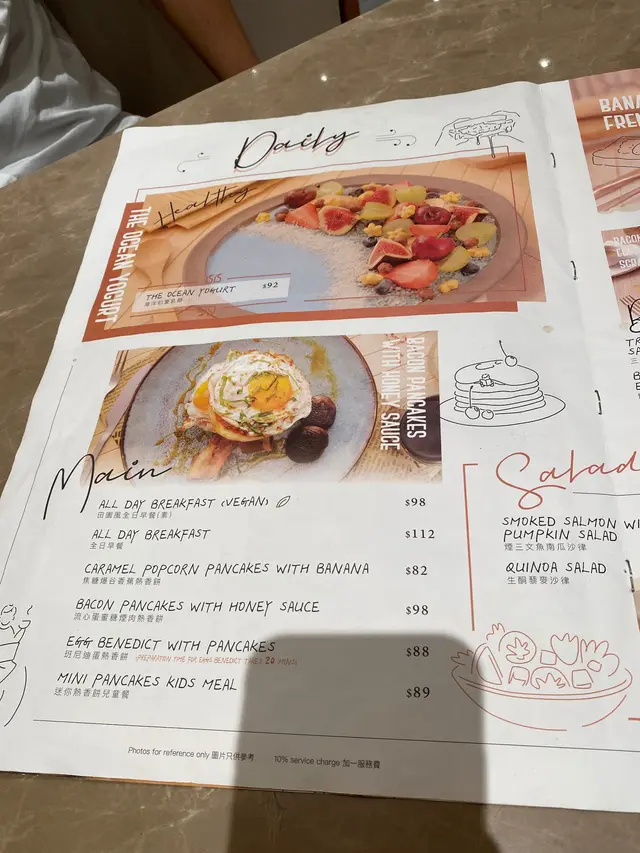 Daily
Healthy
THE OCEAN YOGURT
THE OCEAN YOGURT $92
海洋能量乳酪
BACON PANCAKES
WITH HONEY SAUCE
Main
ALL DAY BREAKFAST (VEGAN) $98
田園風全日早餐(素)
ALL DAY BREAKFAST $112
全日早餐
CARAMEL POPCORN PANCAKES WITH BANANA $82
焦糖爆谷香蕉熱香餅
BACON PANCAKES WITH HONEY SAUCE $98
流心蛋蜜糖煙肉熱香餅
EGG BENEDICT WITH PANCAKES $88
班尼迪蛋熱香餅 (PREPARATION TIME FOR EGGS BENEDICT TAKES 20 MINS)
MINI PANCAKES KIDS MEAL $89
迷你熱香餅兒童餐
Salad
SMOKED SALMON
PUMPKIN SALAD
煙三文魚南瓜沙律
QUINOA SALAD
生酮藜麥沙律
Photos for reference only 圖片只供參考 10% service charge 加一服務費